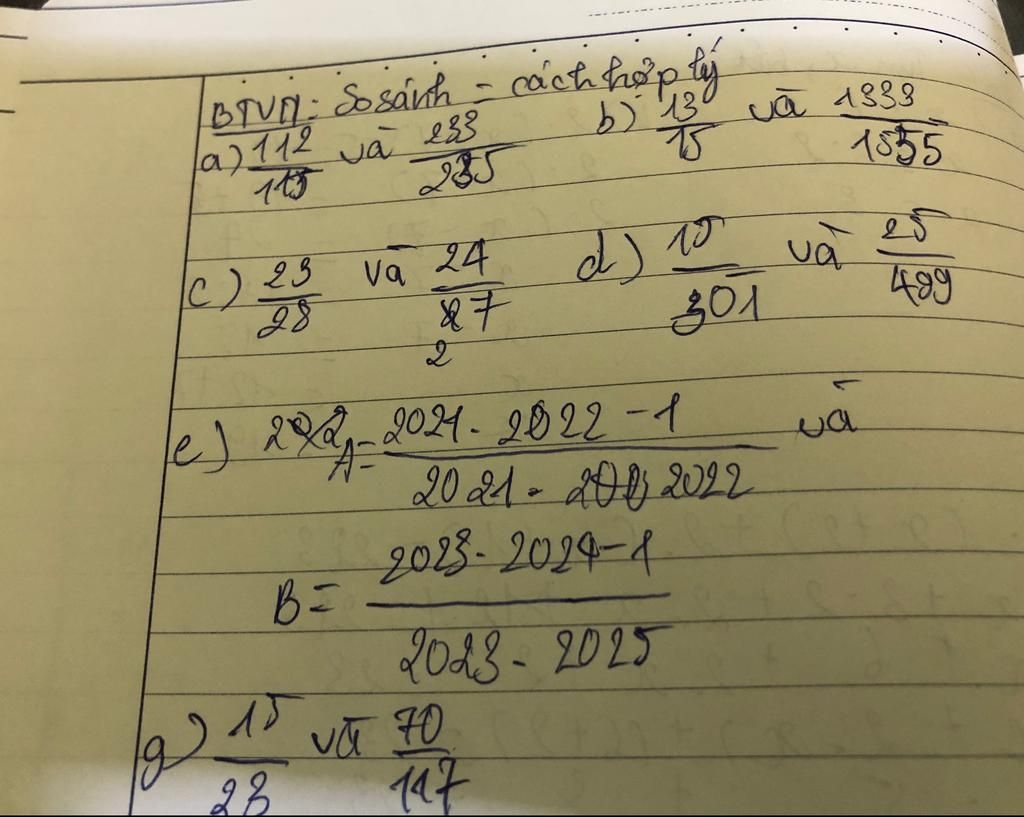 BTVN: So sánh = cách hợp lý
a) 112/115 và 233/235 b) 13/15 và 1333/1555
c) 23/28 và 24/27 d) 15/301 và 25/499
2
e) A = 2021. 2022 - 1 / 2021. 2022 và
B = 2023. 2024 - 1 / 2023. 2025
g) 15/23 và 70/117